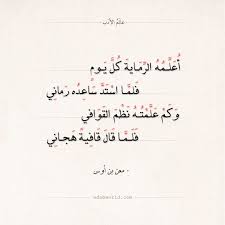 عالم الأدب
أُعَلِّمُهُ الرِّمَايَةَ كُلَّ يَومٍ
فَلَمَّا اسْتَدَّ سَاعِدُهُ رَمَاني
وَكَمْ عَلَّمْتُهُ نَظْمَ القَوَافي
فَلَمَّا قَالَ قَافِيَةً هَجَاني
- معن بن أوس
adabworld.com